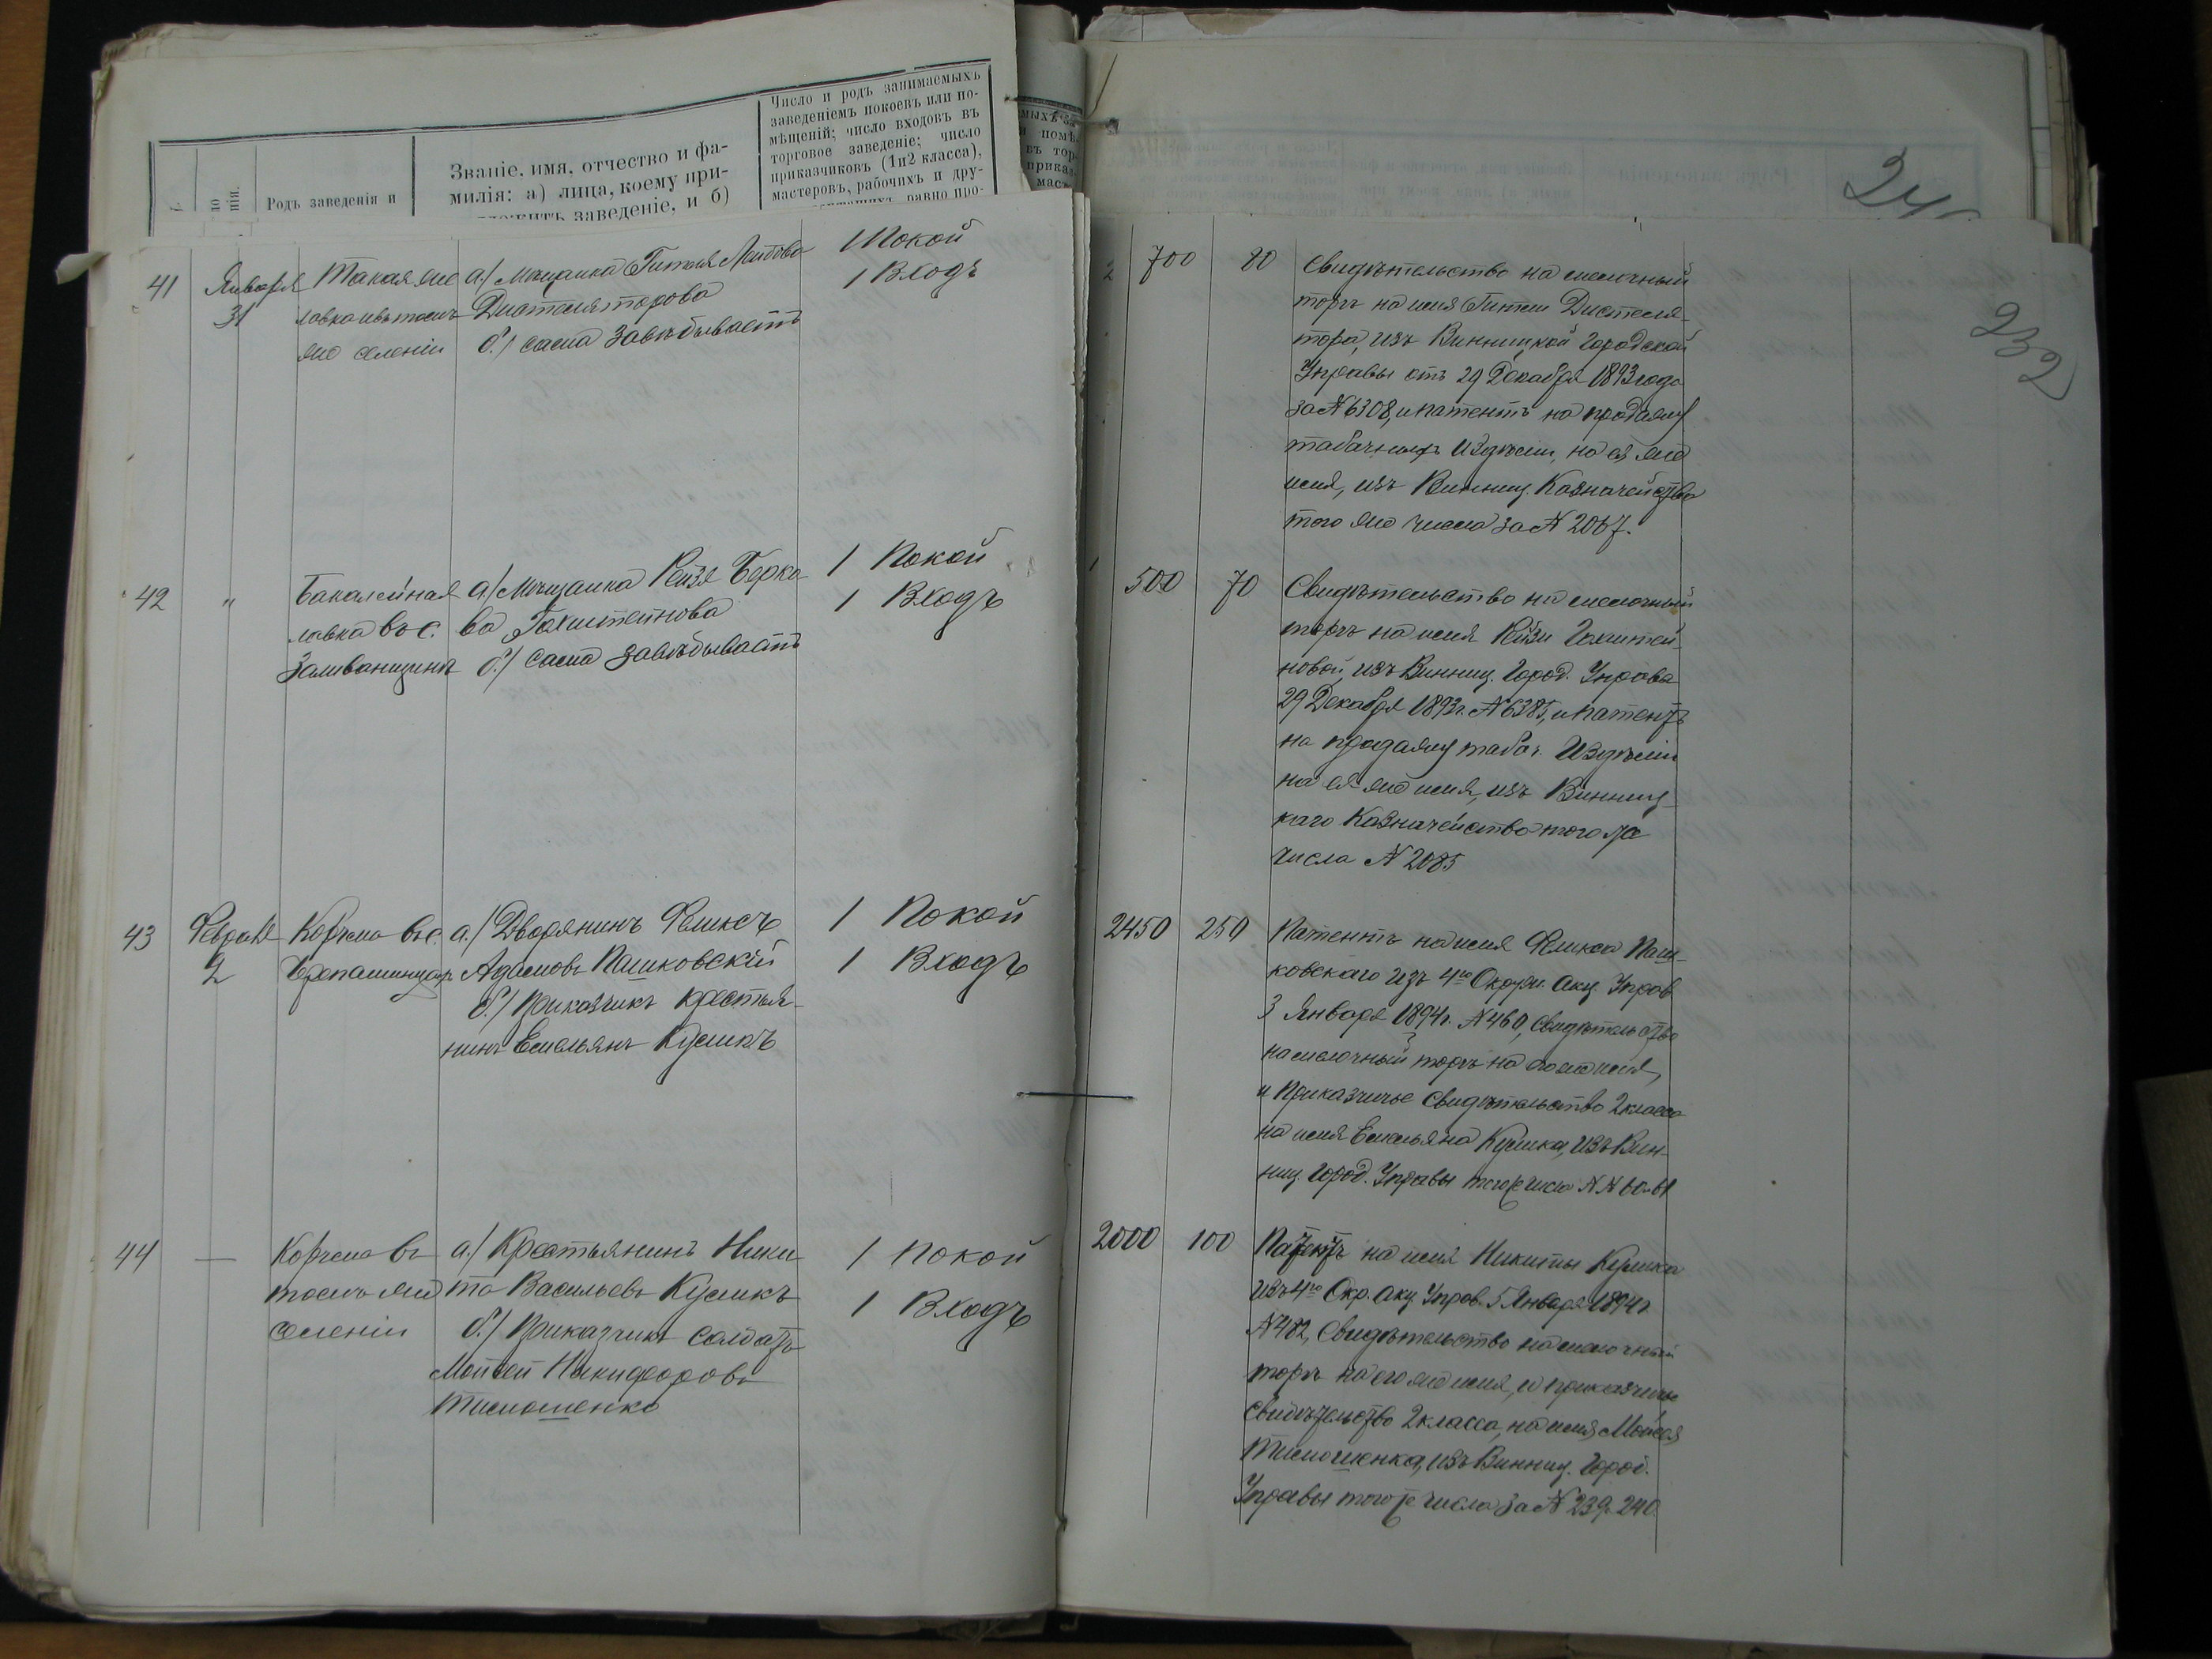 Родъ заведенія и
Званіе, имя, отчество и фа-
милія: а) лица, коему при-
заведеніе, и б)
Число и родъ занимаемыхъ
заведеніемъ покоевъ или по-
мѣщеній; число входовъ въ
торговое заведеніе; число
приказчиковъ (1 и 2 класса),
мастеровъ, рабочихъ и дру-
равно про-
24
232
41
Января
31
Такая же
лавка въ томъ
же селеніи
а) Мѣщанка Гитля
Дистеляторова
б.) сама завѣдываетъ
1 Покой
1 Входъ
700
Свидѣтельство на мелочный
торгъ на имя Гитли Дистеля-
тора, изъ Винницкой Городской
Управы отъ 29 Декабря 1893 года
за № 6308, и патентъ на продажу
табачныхъ издѣлій, на ея же
имя, изъ Винниц. Казначейства
того же числа за № 2067.
42
"
Бакалейная
лавка въ с.
а) Мѣщанка Рейзя Берко
ва
б.) сама завѣдываетъ
1 Покой
1 Входъ
500
70
Свидѣтельство на мелочный
торгъ на имя Рейзи
новой, изъ Винниц. Город. Управы
29 Декабря 1893 г. № 6385, и патентъ
на продажу табач. Издѣлій
на ея же имя, изъ Винниц-
каго Казначейства того же
числа № 2085
43
Февраля
2
Корчма въ с.
а.) Дворянинъ Феликсъ
Адамовъ Пашковскій
б.) Приказчикъ крестья-
нинъ Емельянъ Куликъ
1 Покой
1 Входъ
2450
250
Патентъ на имя Феликса Паш-
ковскаго изъ 4го Окружн. Акц. Управ
3 Января 1894 г. № 460, свидѣтельство
на мелочный торгъ на его же имя,
и Приказчичье свидѣтельство 2 класса
на имя Емельяна Кулика, изъ Вин-
ниц. Город. Управы того же числа № №
44
—
Корчма въ
томъ же
селеніи
а.) Крестьянинъ Ники
та Васильевъ Куликъ
б.) Приказчикъ солдатъ
Мойсей Никифоровъ
Тимошенко
1 Покой
1 Входъ
2000
100
Патентъ на имя Никиты Кулика
изъ 4го Окр. Акц. Управ. 5 Января 1894 г.
№ 482, Свидѣтельство на мелочный
торгъ на его же имя, и приказчичье
свидѣтельство 2 класса, на имя Мойсея
Тимошенка, изъ Винниц. Город.
Управы того же числа за № 239. 240.